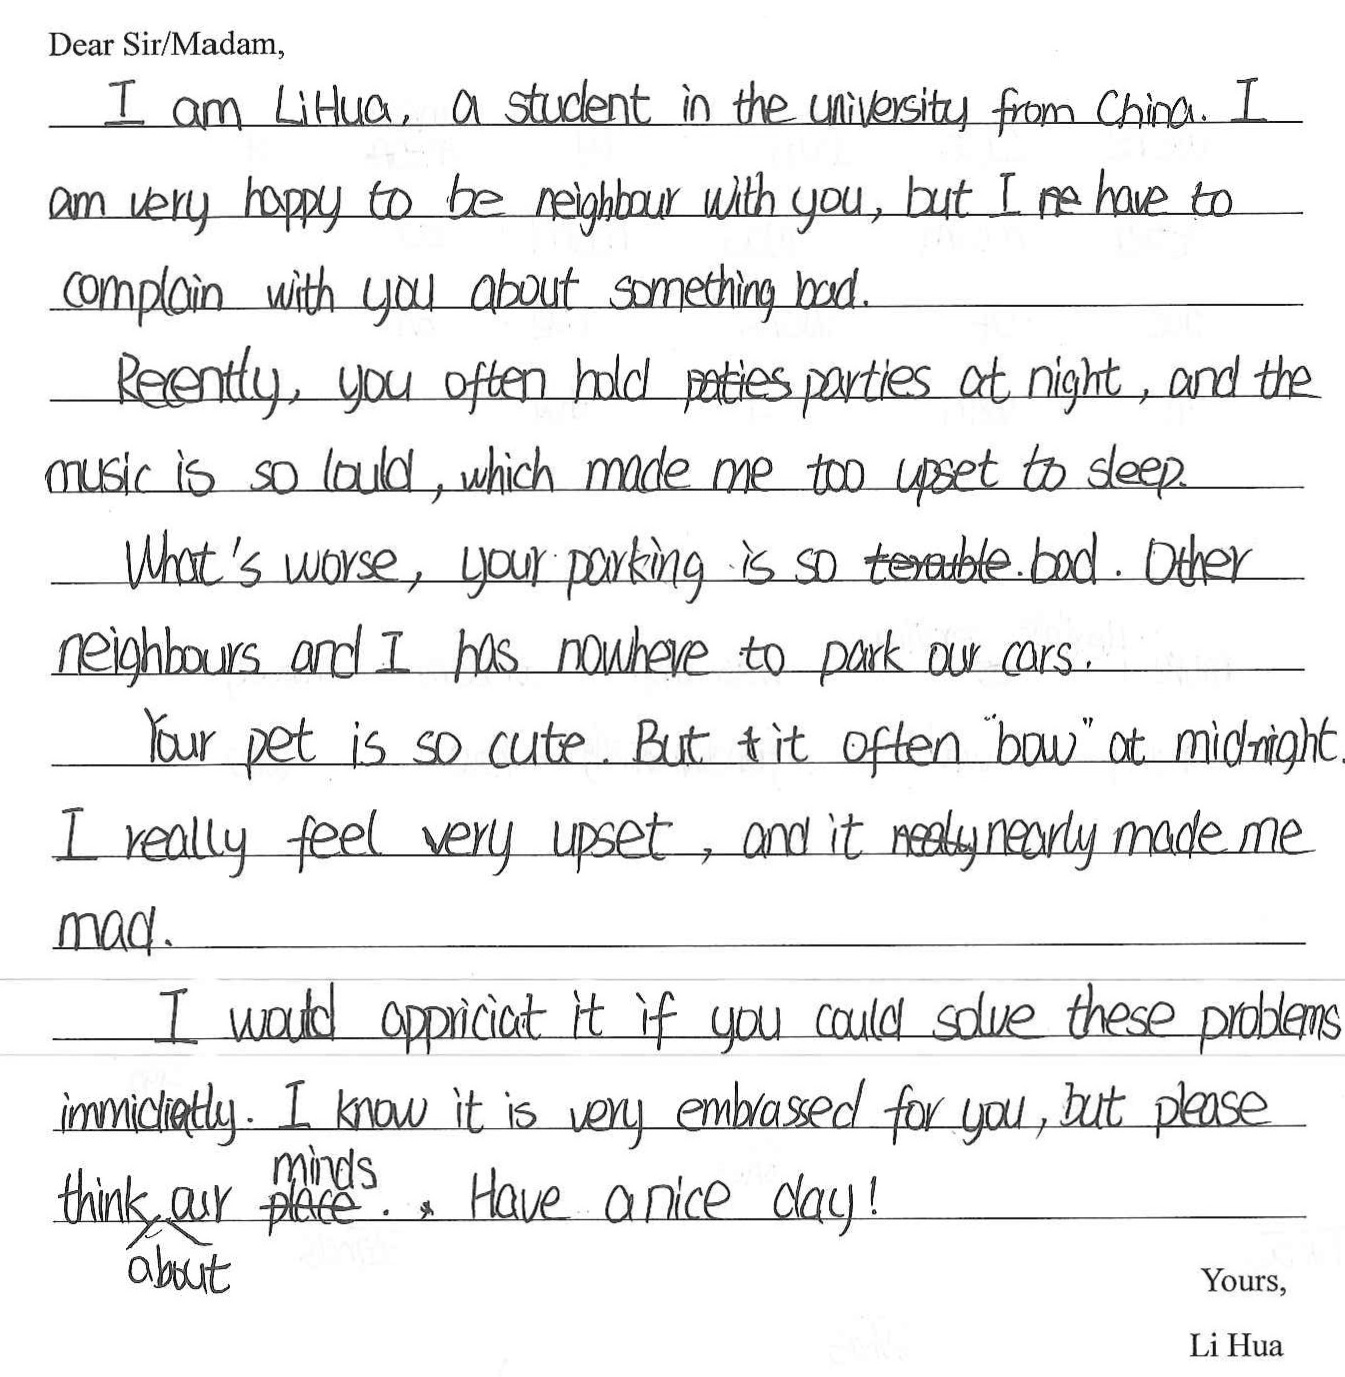 Dear Sir/Madam,
I am LiHua, a student in the university from China. I
am very happy to be neighbour with you, but I have to
complain with you about something bad.
Recently, you often hold parties at night, and the
music is so lould, which made me too upset to sleep.
What's worse, your parking is so bad. Other
neighbours and I has nowhere to park our cars.
Your pet is so cute. But it often "bow" at midnight.
I really feel very upset, and it nearly made me
mad.
I would appriciat it if you could solve these problems
immidiatly. I know it is very embrassed for you, but please
think about our minds. Have a nice day!
Yours,
Li Hua